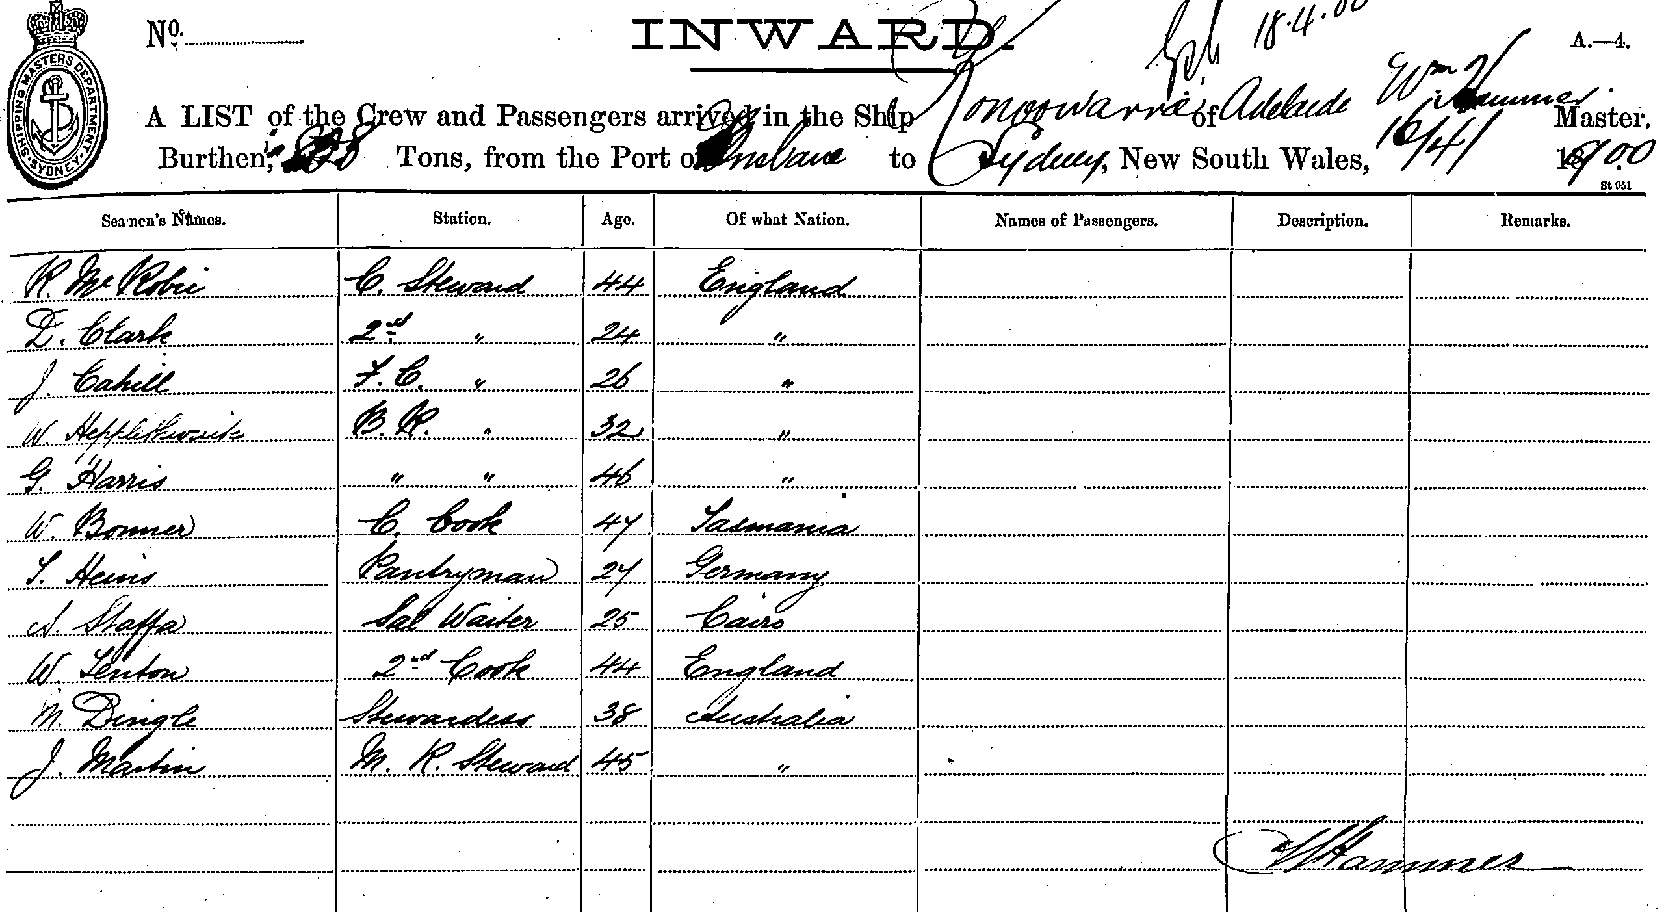 No. INWARD. 18.4.00 A.—4.
SHIPPING MASTERS DEPARTMENT SYDNEY
A LIST of the Crew and Passengers arrived in the Ship Konoowarra of Adelaide Wm Hammer Master,
Burthen, Tons, from the Port of Brisbane to Sydney, New South Wales, 16/4/ 1900
St 951
Seamen's Names. Station. Age. Of what Nation. Names of Passengers. Description. Remarks.
R. McRobie C. Steward 44 England
D. Clark 2nd " 24 "
J. Cahill F. C. " 26 "
W Hepplethwaite B. R. " 32 "
G. Harris " " 46 "
W. Bonner C. Cook 47 Tasmania
S. Heins Pantryman 27 Germany
A. Staffa Sal Waiter 25 Cairo
W. Fenton 2nd Cook 44 England
M. Dingle Stewardess 38 Australia
J. Martin M. R. Steward 45 "
W Hammer